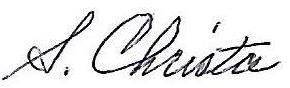 S. Christa